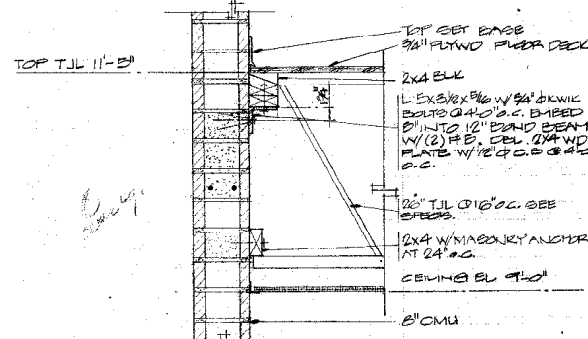 TOP SET BASE
3/4" PLYWD FLOOR DECK
TOP TJL 11'-3"
2x4 BLK
L 5x3 1/2x5/16 W/ 3/4" Ø KWIK
BOLTS @ 4'-0" o.c. EMBED
8" INTO 12" BOND BEAM
W/ (2) #5. DBL. 2x4 WD
PLATE W/ 1/2" Ø C.S @ 4'-0
o.c.
26" TJL @ 16" o.c. SEE
SPECS.
2x4 W/ MASONRY ANCHOR
AT 24" o.c.
CEILING EL 9'-0"
8" CMU